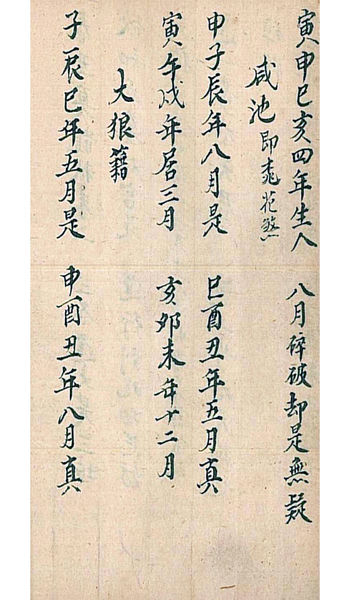 寅申巳亥四年生人　八月碎破却是無疑
咸池即桃花煞
申子辰年八月是　巳酉丑年五月真
寅午戌年居三月　亥卯未年十二月
大狼籍
子辰巳年五月是　申酉丑年八月真